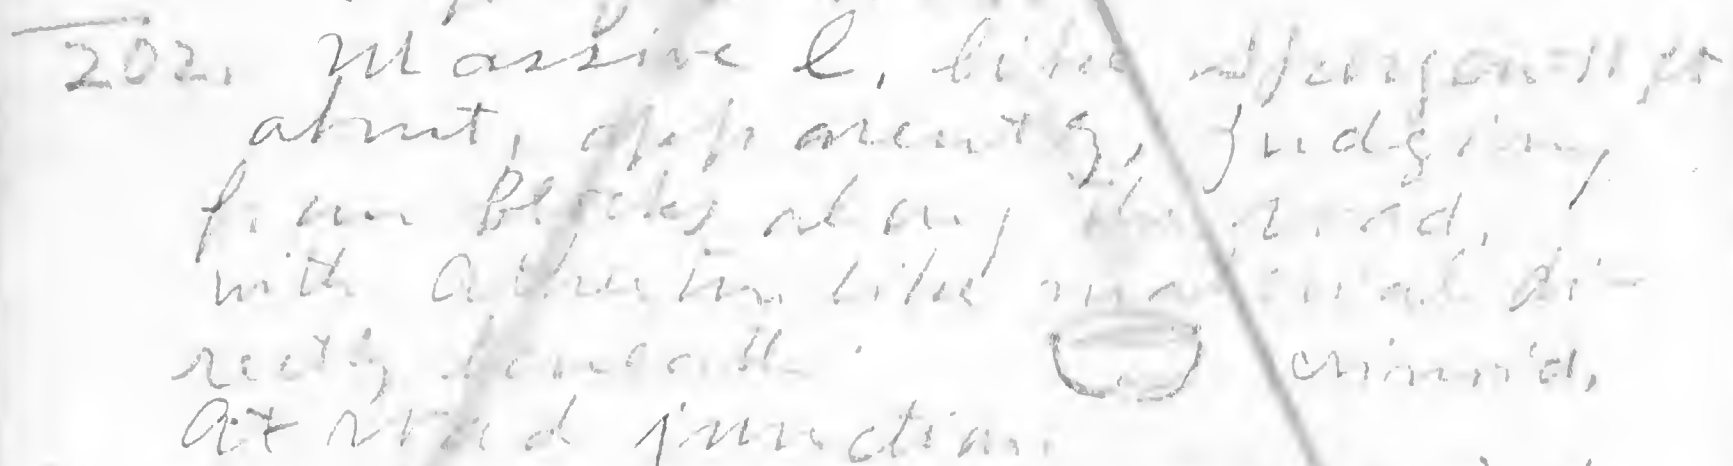 202. Massive l, like
about, apparently, judging
from blocks along the road,
with like material di-
rectly beneath. crinoid,
At road junction.